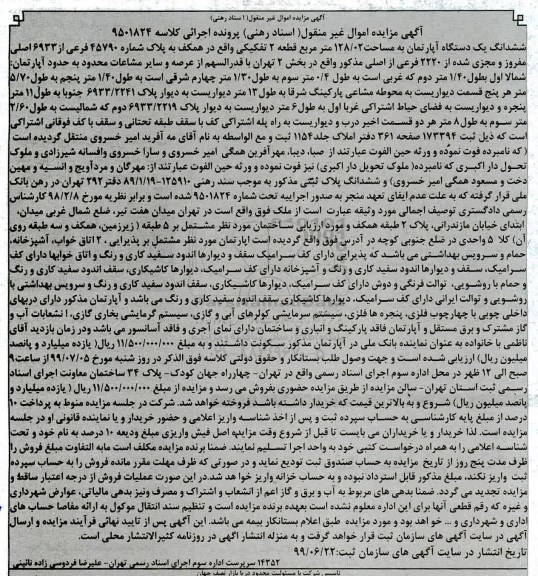 آگهی مزایده اموال غیر منقول (اسناد رهنی)
آگهی مزایده اموال غیر منقول( اسناد رهنی) پرونده اجرائی کلاسه ۹۵۰۱۸۲۴
ششدانگ یک دستگاه آپارتمان به مساحت ۱۲۸/۰۲ متر مربع قطعه ۲ تفکیکی واقع در همکف به پلاک شماره ۴۵۷۹۰ فرعی از ۶۹۳۳ اصلی
مفروز و مجزی شده از ۲۲۲۰ فرعی از اصلی مذکور واقع در بخش ۲ تهران با قدرالسهم از عرصه و سایر مشاعات محدوده به حدود آپارتمان:
شمالا اول بطول ۱/۴۰ متر دوم که غربی است به طول ۰/۴ متر سوم به طول ۱/۳۰ متر چهارم شرقی است به طول ۱/۴۰ متر پنجم به طول ۵/۷۰
متر هر پنج قسمت دیواریست به محوطه مشاعی پارکینگ شرقا به طول ۱۳ متر دیواریست به دیوار پلاک ۶۹۳۳/۲۲۴۱ جنوبا به طول ۱۱ متر
پنجره و دیواریست به فضای حیاط اشتراکی غربا اول به طول ۶ متر دیواریست به دیوار پلاک ۶۹۳۳/۲۲۱۹ دوم که شمالیست به طول ۲/۶۰
متر سوم به طول ۸ متر هر دو قسمت اخیر درب و دیواریست به راه پله اشتراکی کف با سقف طبقه تحتانی و سقف با کف فوقانی اشتراکی
است که ذیل ثبت ۱۷۳۳۹۴ صفحه ۳۶۱ دفتر املاک جلد ۱۱۵۴ ثبت و مع الواسطه به نام آقای مه آفرید امیر خسروی منتقل گردیده است
( که نامبرده فوت نموده و ورثه حین الفوت عبارتند از صبا، دیبا، مهرآفرین همگی امیر خسروی و سارا خسروی وافسانه شیرزادی و ملوک
تحول دار اکبری که نامبرده( ملوک تحویل دار اکبری) نیز فوت نموده و ورثه حین الفوت عبارتند از: مهرگان و مردآویج و انسیه و مهین
دخت و مسعود همگی امیر خسروی) و ششدانگ پلاک ثبتی مذکور به موجب سند رهنی ۱۲۵۹۱۰-۸۹/۱/۱۹ دفتر ۲۹۲ تهران در رهن بانک
ملی قرار گرفته که به علت عدم ایفای تعهد منجر به صدور اجراییه تحت شماره ۹۵۰۱۸۲۴ شده است و برابر نظریه مورخ ۹۸/۲/۸ کارشناس
رسمی دادگستری توصیف اجمالی مورد وثیقه عبارت است از ملک فوق واقع است در تهران میدان هفت تیر، ضلع شمال غربی میدان،
ابتدای خیابان مازندرانی، پلاک ۲ طبقه همکف و مورد ارزیابی ساختمان مورد نظر مشتمل بر ۵ طبقه ( زیرزمین، همکف و سه طبقه روی
آن) کلا ۵ واحدی در ضلع جنوبی کوچه در آدرس فوق واقع گردیده است اپارتمان مورد نظر مشتمل بر پذیرایی ، ۲ اتاق خواب، آشپزخانه،
حمام و سرویس بهداشتی می باشد که پذیرایی دارای کف سرامیک سقف و دیوارها اندود سفید کاری و رنگ و اتاق خوابها دارای کف
سرامیک، سقف و دیوارها اندود سفید کاری و رنگ و آشپزخانه دارای کف سرامیک، دیوارها کاشیکاری، سقف اندود سفید کاری و رنگ
و حمام با روشویی، توالت فرنگی و دوش دارای کف سرامیک، دیوارها کاشیکاری، سقف اندود سفید کاری و رنگ و سرویس بهداشتی با
روشویی و توالت ایرانی دارای کف سرامیک، دیوارها کاشیکاری سقف اندود سفید کاری و رنگ می باشد و آپارتمان مذکور دارای دربهای
داخلی چوبی با چهارچوب فلزی، پنجره ها فلزی، سیستم سرمایشی کولرهای آبی و گازی، سیستم گرمایشی بخاری گازی، انشعابات آب و
گاز مشترک و برق مستقل و آپارتمان فاقد پارکینگ و انباری و ساختمان دارای نمای آجری و فاقد آسانسور می باشد ودر زمان بازدید آقای
ناظمی با خانواده به عنوان نماینده بانک ملی در آپارتمان مذکور سکونت داشتند و به مبلغ ۱۱/۵۰۰/۰۰۰/۰۰۰ ریال( یازده میلیارد و پانصد
میلیون ریال) ارزیابی شده است و جهت وصول طلب بستانکار و حقوق دولتی کلاسه فوق الذکر در روز شنبه مورخ ۹۹/۰۷/۰۵ از ساعت ۹
صبح الی ۱۲ ظهر در محل اداره سوم اجرای اسناد رسمی واقع در تهران- چهارراه جهان کودک- پلاک ۳۴ ساختمان معاونت اجرای اسناد
رسمی ثبت استان تهران- سالن مزایده از طریق مزایده حضوری بفروش می رسد و مزایده از مبلغ ۱۱/۵۰۰/۰۰۰/۰۰۰ ریال ( یازده میلیارد و
پانصد میلیون ریال) شروع و به بالاترین قیمت که خریدار داشته باشد فروخته خواهد شد. شرکت در جلسه مزایده منوط به پرداخت ۱۰
درصد از مبلغ پایه کارشناسی به حساب سپرده ثبت و پس از اخذ شناسه واریز اعلامی و حضور خریدار و یا نماینده قانونی او در جلسه
مزایده است. لذا خریدار و یا خریداران می بایست تا قبل از شروع وقت مزایده اصل فیش واریزی مبلغ ودیعه ۱۰ درصد به نام خود و تحت
شناسه اعلامی را به همراه درخواست کتبی خود به واحد اجرا تسلیم نمایند. ضمنا برنده مزایده مکلف است مابه التفاوت مبلغ فروش را
ظرف مدت پنج روز از تاریخ مزایده به حساب صندوق ثبت تودیع نماید و در صورتی که ظرف مهلت مقرر مانده فروش را به حساب سپرده
ثبت واریز نکند، مبلغ مذکور قابل استرداد نبوده و به حساب خزانه واریز خواهد شد.در این صورت عملیات فروش از درجه اعتبار ساقط و
مزایده تجدید می گردد. ضمنا بدهی های مربوط به آب و برق و گاز اعم از انشعاب و اشتراک و مصرف ونیز بدهی مالیاتی، عوارض شهرداری
و غیره که رقم قطعی آنها برای این اداره معلوم نشده است بعهده برنده مزایده است و تنظیم سند انتقال موکول به ارائه مفاصا حساب های
اداری و شهرداری و ... خواهد بود و مورد مزایده طبق اعلام بستانکار بیمه می باشد. این آگهی پس از تایید نهائی فرآیند مزایده و ارسال
آگهی در سایت آگهی های سازمان ثبت قرار خواهد گرفت و به منزله انتشار آگهی در روزنامه کثیرالانتشار محلی است.
تاریخ انتشار در سایت آگهی های سازمان ثبت: ۹۹/۰۶/۲۲
۱۴۳۵۲ سرپرست اداره سوم اجرای اسناد رسمی تهران- علیرضا فردوسی زاده نائینی
تاسیس شرکت با مسئولیت محدود دریا بازار نصف جهان